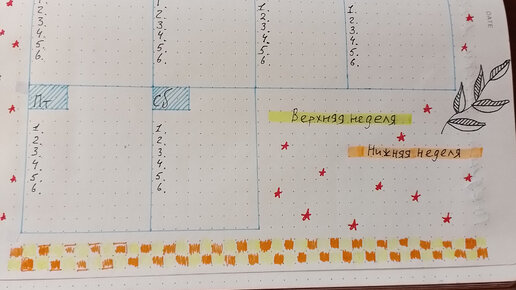 1.
2.
3.
4.
5.
6.
1.
2.
3.
4.
5.
6.
1.
2.
3.
4.
5.
6.
1.
2.
3.
4.
5.
6.
DATE
Пт
1.
2.
3.
4.
5.
6.
Сб
1.
2.
3.
4.
5.
6.
Верхняя неделя
Нижняя неделя